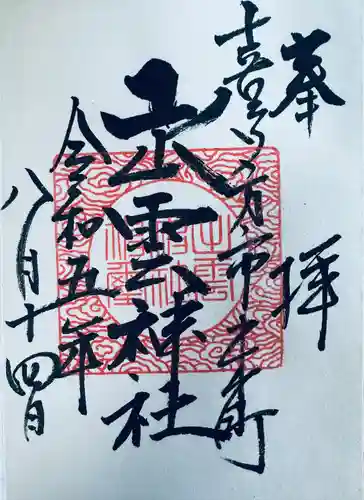 奉拝
喜多方市本町
出雲神社
令和五年
八月十四日